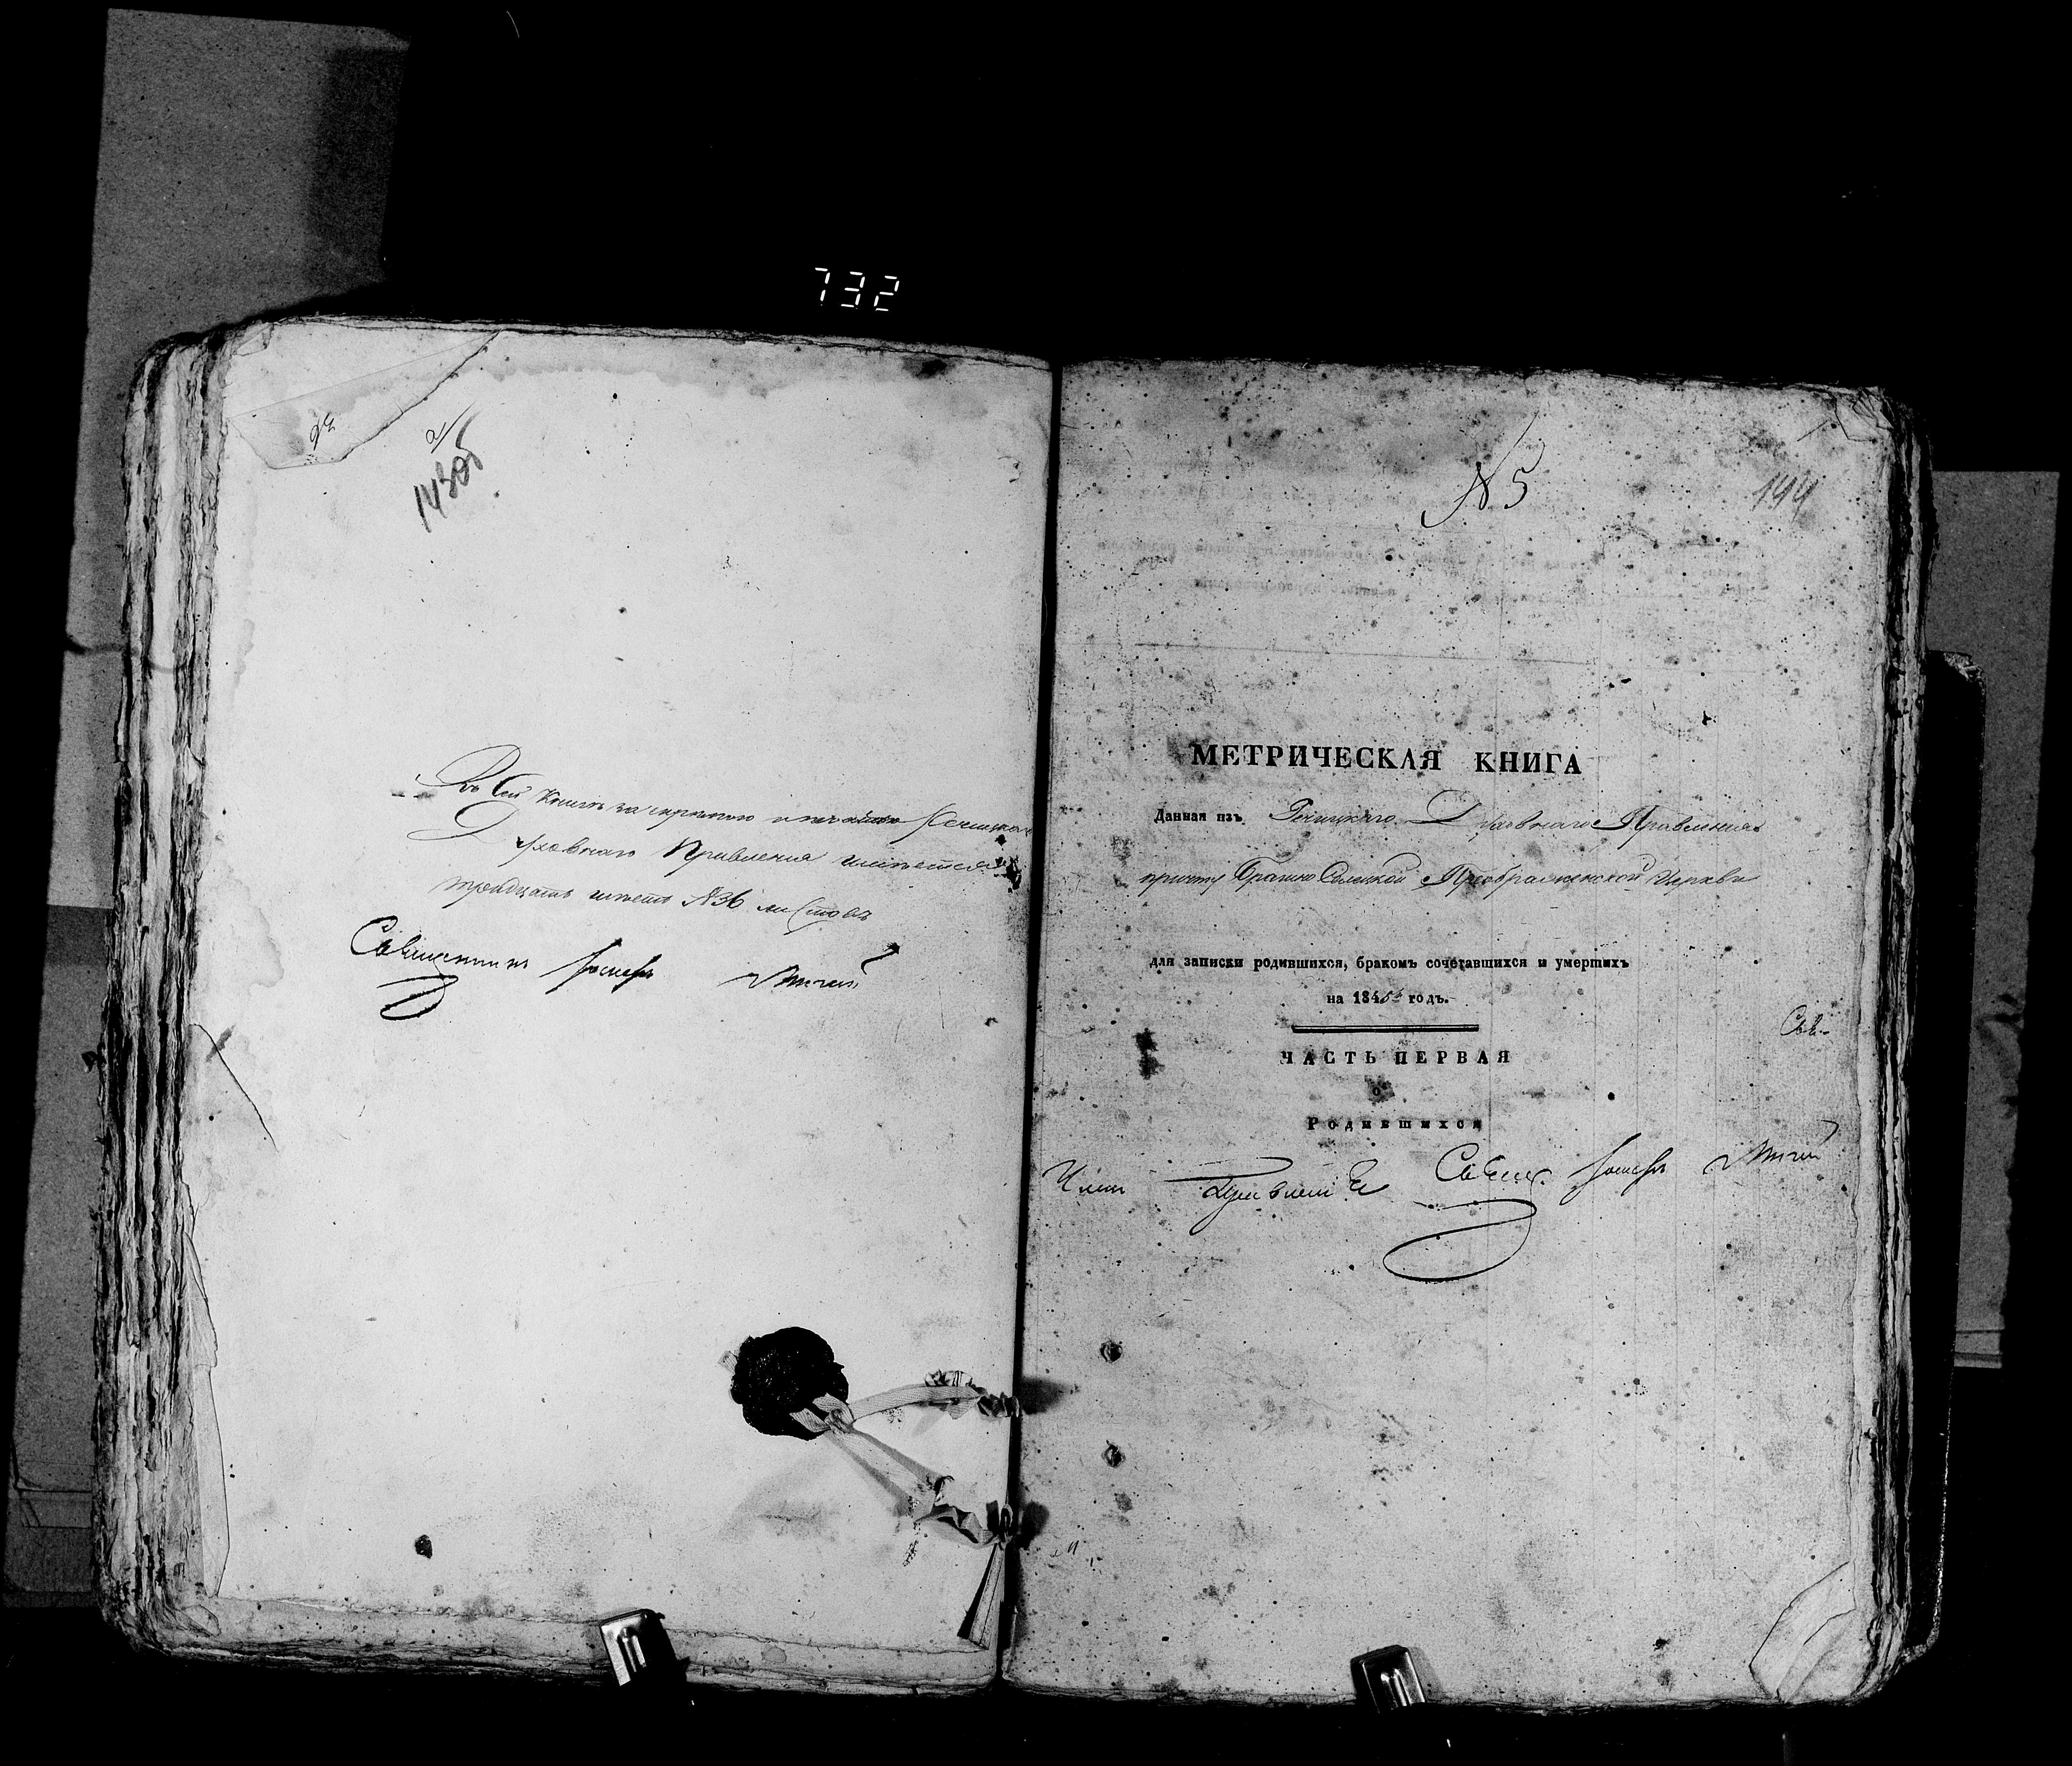 732
143об
Въ сей Книгѣ за скрѣпою и печатью Речицкаго
Духовнаго Правленія имѣется
тридцать шесть №36 листовъ
Священникъ Іосифъ
№5
144
МЕТРИЧЕСКАЯ КНИГА
Данная изъ Речицкаго Духовнаго Правленія
причту Брагино Селецкой Преображенской Церкви
для записки родившихся, бракомъ сочетавшихся и умершихъ
на 1845й годъ.
Свя-
ЧАСТЬ ПЕРВАЯ
о
Родившихся
Членъ Правленія Священ. Іосифъ